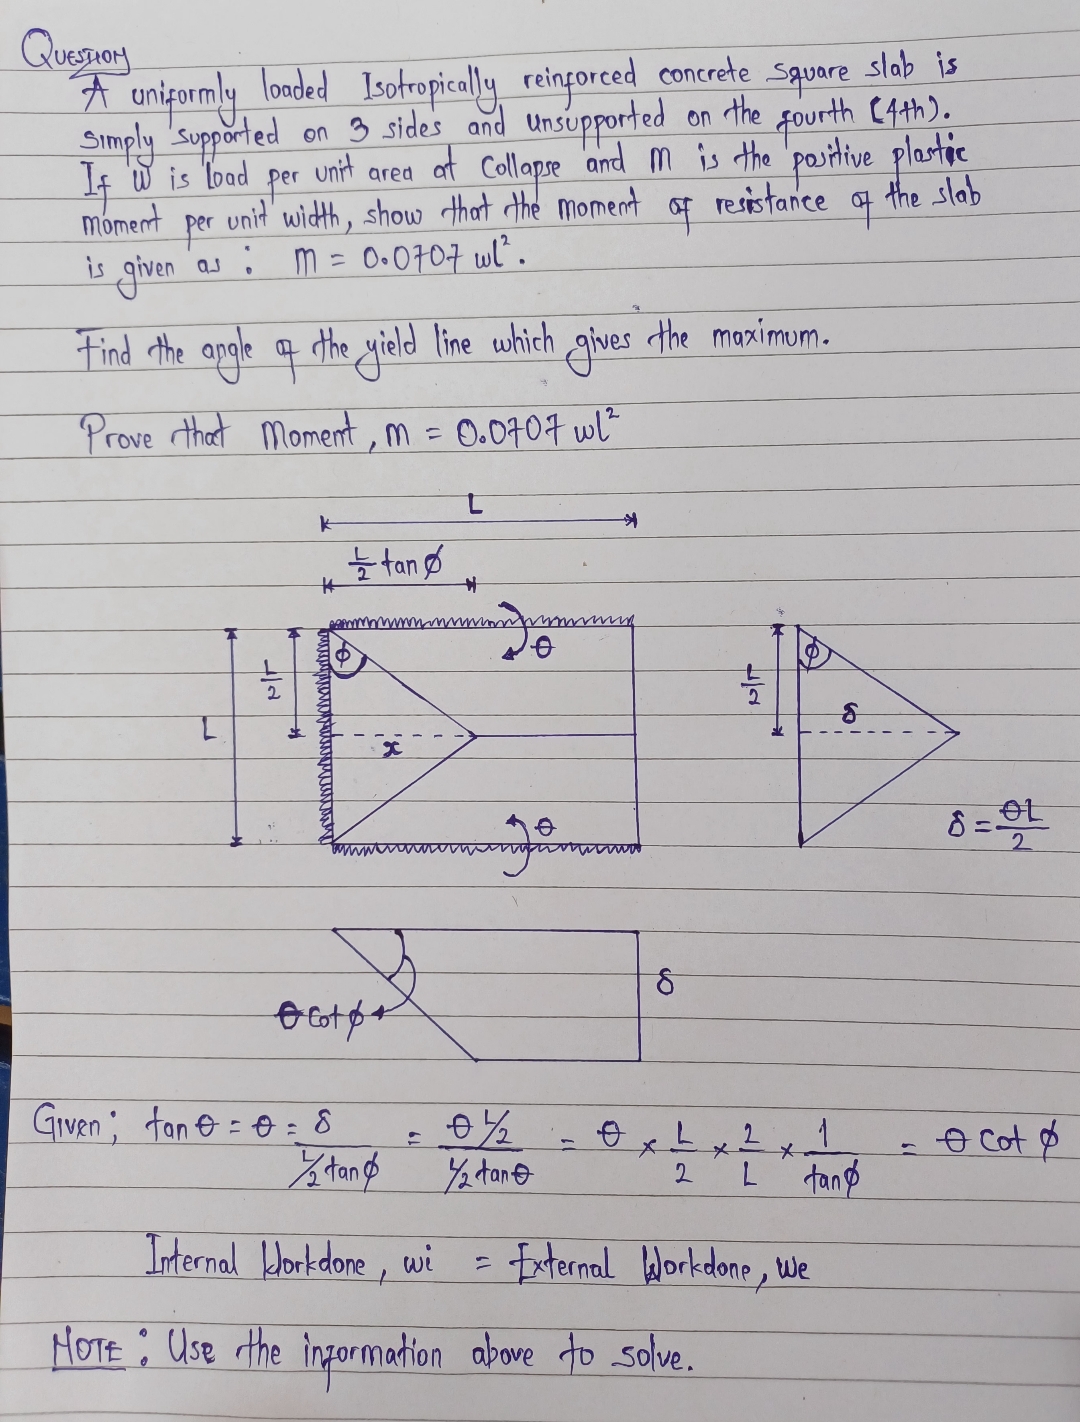 QUESTION
A uniformly loaded Isotropically reinforced concrete square slab is
simply supported on 3 sides and unsupported on the fourth (4th).
If w is load per unit area at Collapse and m is the positive plastic
moment per unit width, show that the moment of resistance of the slab
is given as : m = 0.0707 wl².
Find the angle of the yield line which gives the maximum.
Prove that Moment, m = 0.0707 wl²
L
L/2 tan φ
φ
θ
L/2
L
x
θ
φ
L/2
δ
δ = θL/2
δ
θ cot φ
Given; tan θ = θ = δ / (L/2 tan φ) = (θ L/2) / (L/2 tan θ) = θ × L/2 × 2/L × 1/tan φ = θ cot φ
Internal Workdone, wi = External Workdone, we
NOTE : Use the information above to solve.